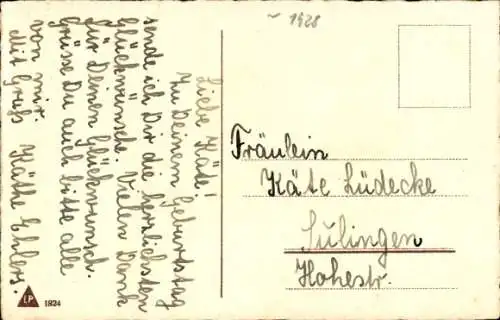 ~ 1928
Liebe Käte!
Zu Deinem Geburtstag
sende ich Dir die herzlichsten
Glückwünsche. Vielen Dank
für Deinen Glückwunsch.
Grüsse Du auch bitte alle
von mir.
Mit Gruß Käthe Ehlers.
Fräulein
Käte Lüdecke
Sulingen
Hohestr.
LP 1824